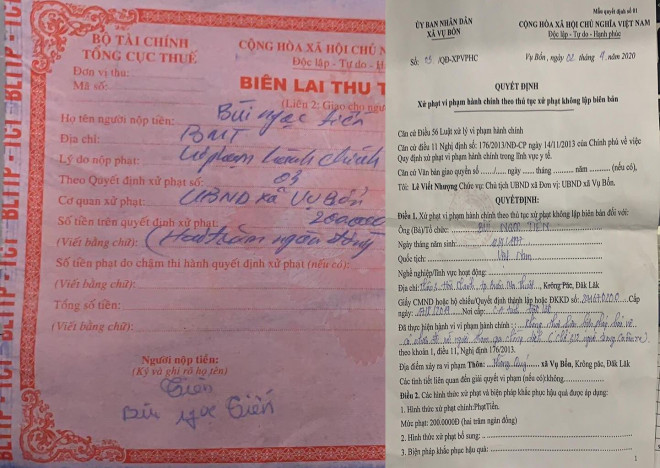 BLTTP-TCT
BỘ TÀI CHÍNH
TỔNG CỤC THUẾ
CỘNG HÒA XÃ HỘI CHỦ NGH
Độc lập - Tự do - Hạnh
Đơn vị thu:
Mã số:
BIÊN LAI THU T
(Liên 2: Giao cho ngư
Họ tên người nộp tiền: Bùi Ngọc Tiến
Địa chỉ: BMT
Lý do nộp phạt: Vi phạm hành chính
Theo Quyết định xử phạt số: 03
Cơ quan xử phạt: UBND xã Vụ Bổn
Số tiền trên quyết định xử phạt: 200.000
(Viết bằng chữ): (Hai trăm ngàn đồng
Số tiền phạt do chậm thi hành quyết định xử phạt (nếu có):
(Viết bằng chữ):
Tổng số tiền:
(Viết bằng chữ):
Người nộp tiền:
(Ký và ghi rõ họ tên)
Tiến
Bùi Ngọc Tiến
Mẫu quyết định số 01
ỦY BAN NHÂN DÂN
XÃ VỤ BỔN
CỘNG HÒA XÃ HỘI CHỦ NGHĨA VIỆT NAM
Độc lập - Tự do - Hạnh phúc
Số: 03 /QĐ-XPVPHC
Vụ Bổn, ngày 02 tháng 4 năm 2020
QUYẾT ĐỊNH
Xử phạt vi phạm hành chính theo thủ tục xử phạt không lập biên bản
Căn cứ Điều 56 Luật xử lý vi phạm hành chính
Căn cứ điều 11 Nghị định số: 176/2013/NĐ-CP ngày 14/11/2013 của Chính phủ về việc
Quy định xử phạt vi phạm hành chính trong lĩnh vực y tế.
Căn cứ Văn bản giao quyền số ...... / ...... ngày ...... tháng ...... năm ...... (nếu có),
Tôi: Lê Viết Nhượng Chức vụ: Chủ tịch UBND xã Đơn vị: UBND xã Vụ Bổn.
QUYẾT ĐỊNH:
Điều 1. Xử phạt vi phạm hành chính theo thủ tục xử phạt không lập biên bản đối với:
Ông (Bà)/Tổ chức: Bùi Ngọc Tiến
Ngày tháng năm sinh:
Quốc tịch: Việt Nam
Nghề nghiệp/lĩnh vực hoạt động:
Địa chỉ: Krông Păc, Đăk Lăk
Giấy CMND hoặc hộ chiếu/Quyết định thành lập hoặc ĐKKD số: Cấp
ngày: Nơi cấp:
Đã thực hiện hành vi vi phạm hành chính:
theo khoản 1, điều 11, Nghị định 176/2013.
Địa điểm xảy ra vi phạm Thôn: xã Vụ Bổn, Krông păc, Đăk Lăk
Các tình tiết liên quan đến giải quyết vi phạm (nếu có):không
Điều 2. Các hình thức xử phạt và biện pháp khắc phục hậu quả được áp dụng:
1. Hình thức xử phạt chính:PhạtTiền.
Mức phạt: 200.000Đ (hai trăm ngàn đồng)
2. Hình thức xử phạt bổ sung:
3. Biện pháp khắc phục hậu quả:
1